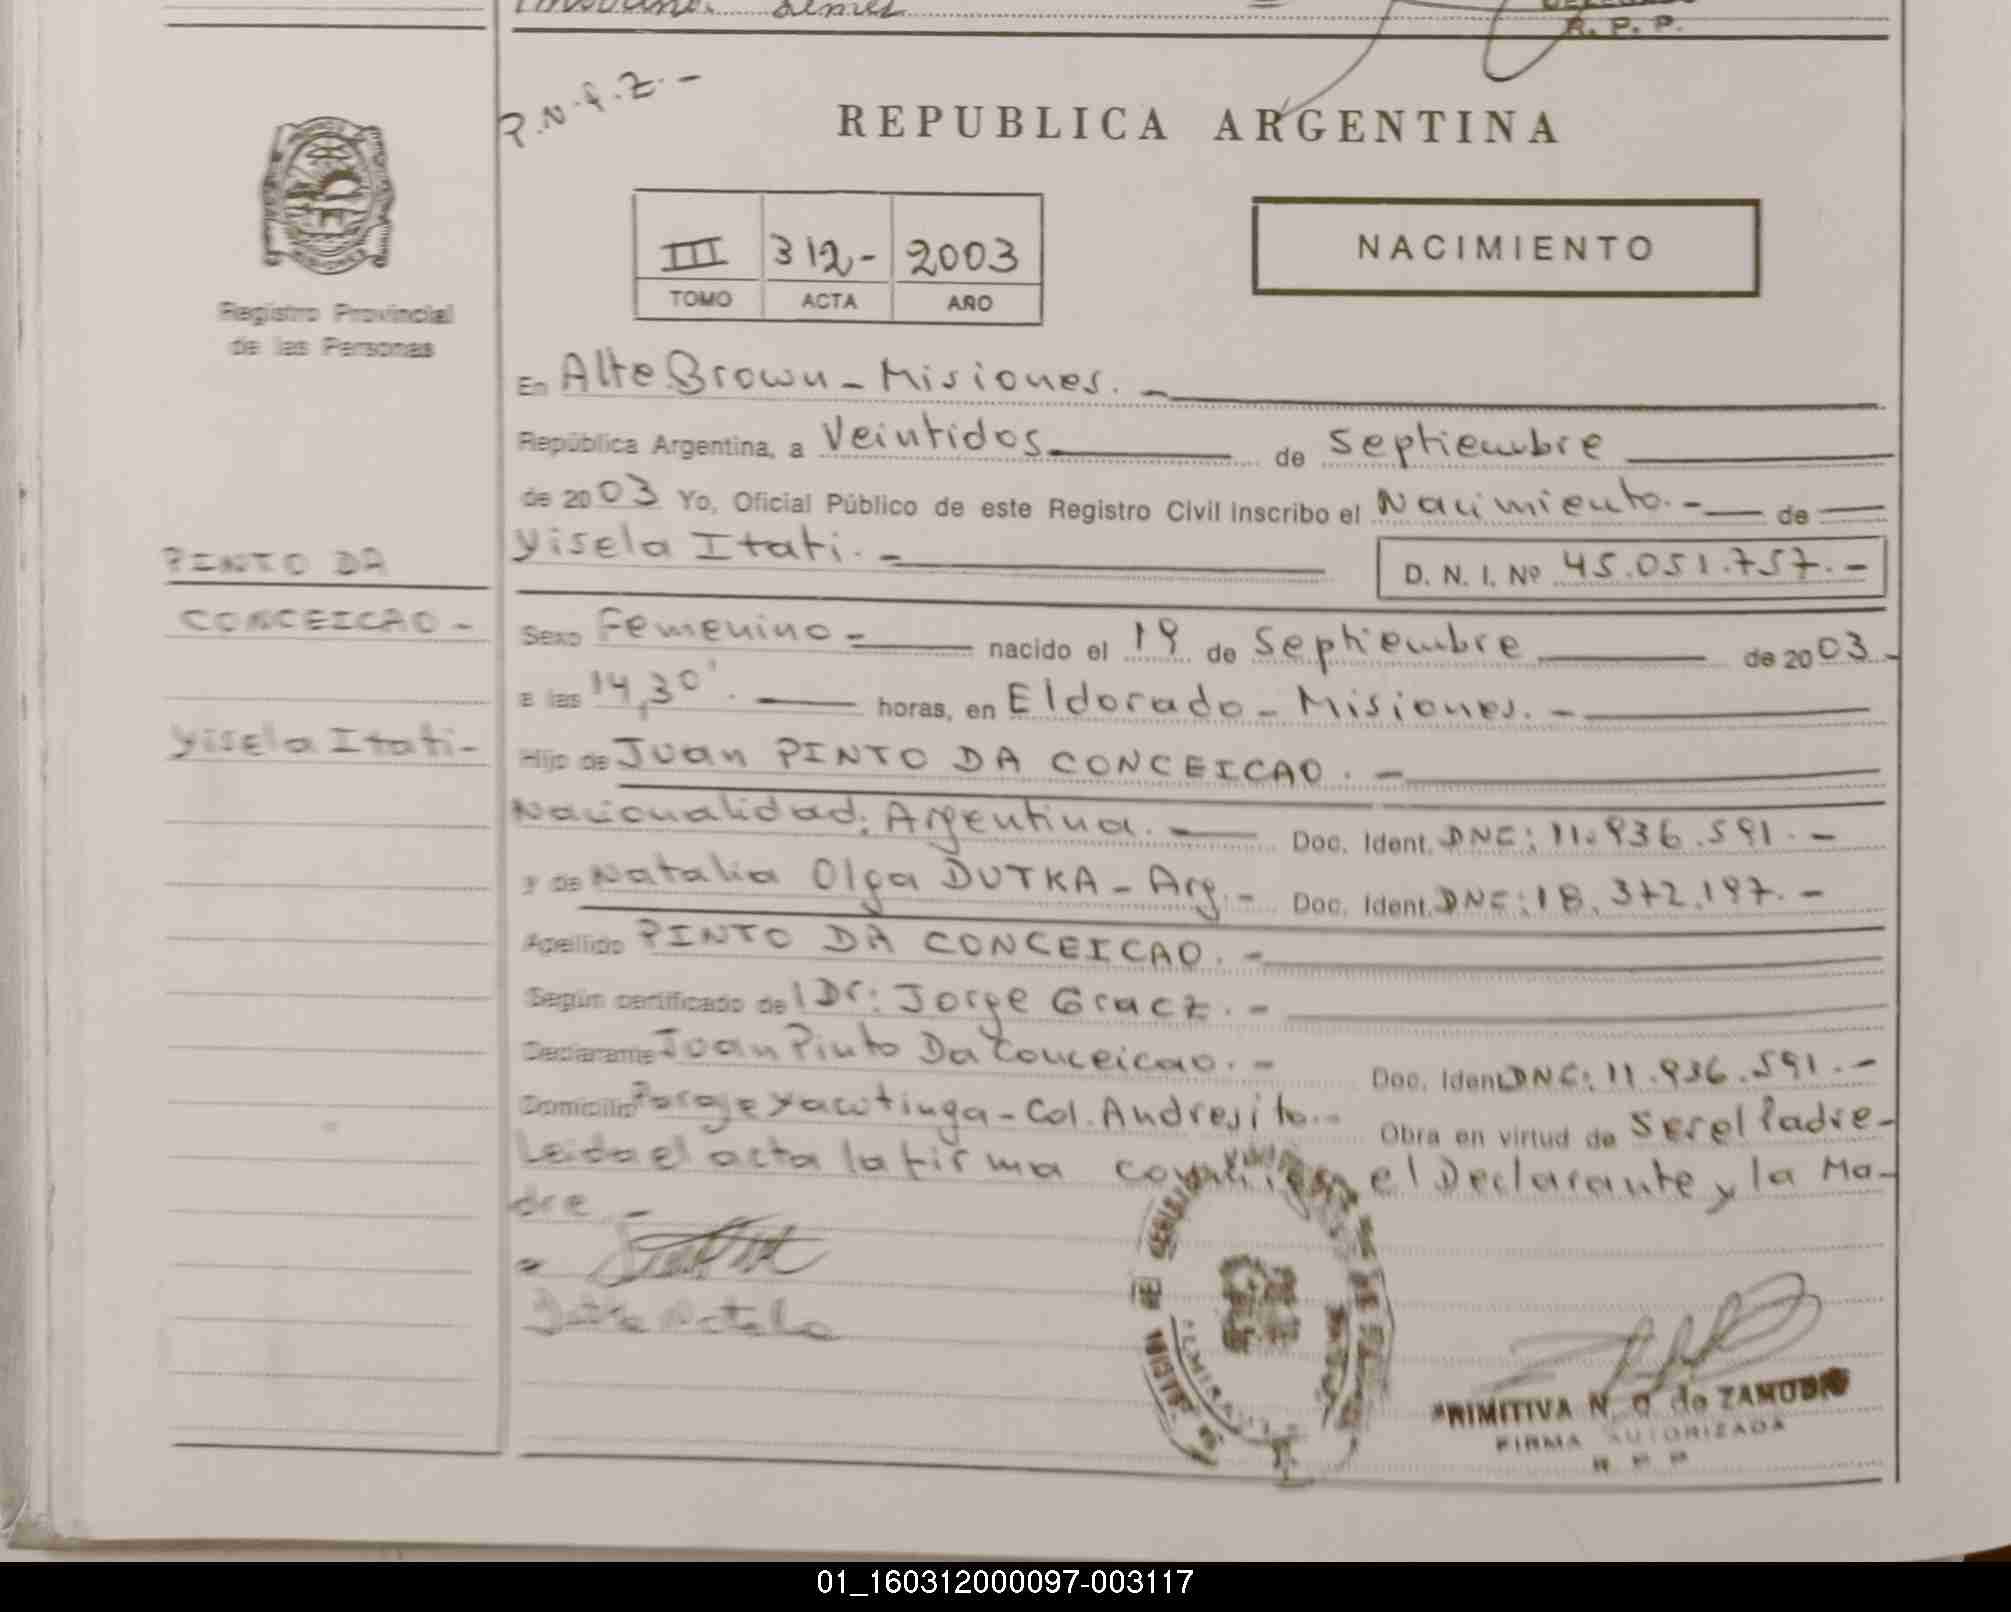 R. P. P.
P.N.f.Z.-
REPUBLICA ARGENTINA
III 312- 2003
TOMO ACTA AÑO
NACIMIENTO
Registro Provincial
de las Personas
En Alte Brown - Misiones. -
República Argentina, a Veintidos de Septiembre
de 2003 Yo, Oficial Público de este Registro Civil inscribo el Nacimiento.- de
Yisela Itati. - D. N. I. Nº 45.051.757.-
PINTO DA
CONCEICAO -
Yisela Itati-
Sexo Femenino - nacido el 19 de Septiembre de 2003.-
a las 14,30'. horas, en Eldorado - Misiones. -
Hijo de Juan PINTO DA CONCEICAO. -
Nacionalidad: Argentina. - Doc. Ident. DNI: 11.936.591.-
y de Natalia Olga DUTKA - Arg. - Doc. Ident. DNI: 18.372.197.-
Apellido PINTO DA CONCEICAO. -
Según certificado del Dr: Jorge Gracz. -
Declarante Juan Pinto Da Conceicao. - Doc. Ident. DNI: 11.936.591.-
Domicilio Paraje Yacutinga - Col. Andresito.- Obra en virtud de Ser el Padre-
Leida el acta la firma conmigo el Declarante y la Ma-
dre -
PRIMITIVA N. O. de ZAMUDIO
FIRMA AUTORIZADA
R P P
01_160312000097-003117